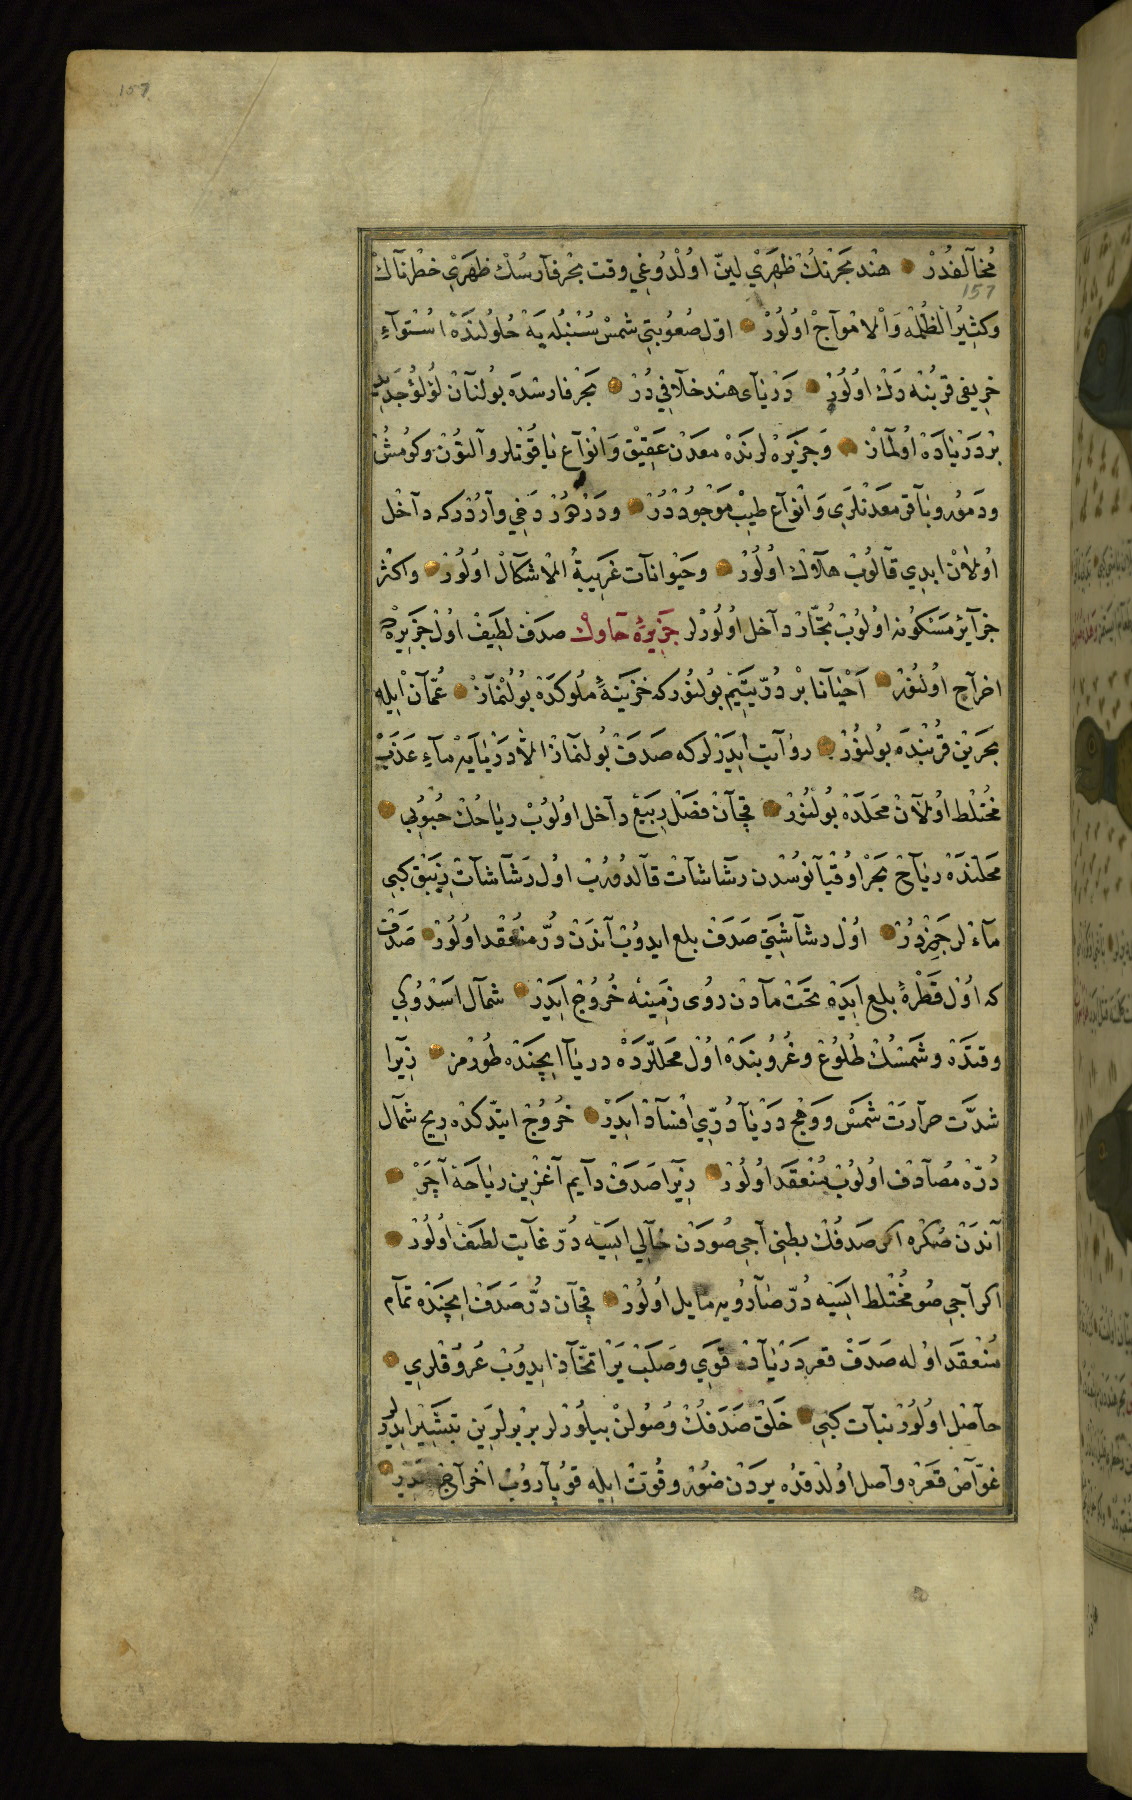 157
مُخَالَفْدُرْ هْند بَحرْنِكْ ظَهَرَىْ لينّ اوُلْدُوغِى وقت بحْر فَآرسُكْ ظَهَرَىْ خطْرنَآكْ
157
وَكثِيُر الْظُلْمَه وَالْامَوَآجْ اوُلُورْ اوّل صُعُوبَتِى شمْسْ سُنْبُلَه يَهْ حُلوُلنَدَهْ اسْتَوآءِ
خرِيفى قربُنه دَكْ اوُلُورْ دَرْيَآى هنْد خلَافِى دُرْ بحْر فارسْدَه بوُلنَآنْ لُؤلُؤ
بْر دَرْيَادَهْ اوُلْمَازْ وَجزَيَرَهْ لرنَدَهْ معدَنْ عَقِيْقْ وَانْوَآع يَاقُوتلر وآلتوُنْ وكوُمشْ
ودَموُر وبَآقر معدَنْلَرى وَانْوَآع طيبْ مَوْجُودْدُرْ ودَرْدُوْر دَخى وآردُرْ كه دآخل
اوُلَانْ ابدِى قَآلوُبْ هلَآكْ اوُلُورْ وحَيْوانآت غَرَيبةُ الْاشْكَآلْ اوُلُورْ واكثر
جزآيرْ مَسكوُنه اوُلوُبْ تجّآرْ دآخل اوُلُورْلر جَزِيرَهْ حآوكْ صدَف لطِيَفْ اوُلْ جزَيرَهْ
اخرآج اوُلنوُرْ اَحْيَآنَا بْر دُرّ يتِيَمْ بوُلنوُرْ كه خزينَهْ ملُوكدَهْ بوُلنْمَآزْ عُمّآنْ ايِله
بحَرَيْن قرُبْنَدَه بوُلنوُرْ روَآيتْ ايدَرْلر كه صَدَفْ بوُلنمَازْ الّا دَرْيَايَهْ مآءِ عذَبْ
مخُتْلط اوُلَآنْ محَلدَهْ بوُلنوُرْ قچَآنْ فضَل رِبَيعْ دآخل اوُلوُبْ رياحُكْ هُبُوُبى
محَلندَهْ ريَآحْ بحْر اوُقْيَآنوُسْدَن رشَّاشَآتْ قآلدوُرُبْ اوُل رشَّآشَآتْ زِيَبقْ كبى
مآءْ لزجَدُرْ اوُلْ رشآشتى صَدَفْ بلع ايدوُبْ آندَنْ دُرّ منُعْقد اوُلُورْ صَدَفْ
كه اوُلْ قَطْرَهْ بلع ايدِهْ تحَتْ مآدَن رُوى زمِينه خُروُجْ ايدَرْ شمآل اسَدُوكى
وقتدَهْ وشمَسُكْ طُلُوعْ وغُرُوبنَدَهْ اوُلْ محَللّرْدَهْ دريآ ايچنَدَه طُورْمز زِيَرا
شدَّت حرآرَتْ شمَسْ ووهْج دَرْيَآ دُرّى افْسَآدْ ايدَرْ خُروُجْ ايتدّكدَه رِيح شمآل
دُرَّهْ مُصَآدفْ اوُلوُبْ مُنْعقَد اوُلُورْ زِيَرا صَدَفْ دآيم آغزِين ريَاحَهْ آچَرْ
آندَنْ صُكره اكر صَدَفُكْ بطنى آجى صُودَنْ خآلى ايسَيه دُرّ غآيت لطَيفْ اوُلُورْ
اكر آجى صُو مخُتْلط ايسَيه دُرّ صَآرُويه مآيل اوُلُورْ قچَآن دُرّ صَدَفْ ايچنَدَه تمآم
مُنْعقَد اوُله صَدَفْ قعر دَرْيَآدَه قوَى وصَلبْ يَر اتخَّآذ ايدوُبْ عُروُقلرى
حآصل اوُلُورْ نبآت كبى خَلقْ صَدَفكْ وُصُولنْ بيلُورْلر بْر بْرلرَين تبشَير ايدَرْلر
غوّآصْ قعَره وآصل اوُلدُقدَه يردَنْ ضوُر وقُوّتْ ايله قوُپآروُبْ اخرآج